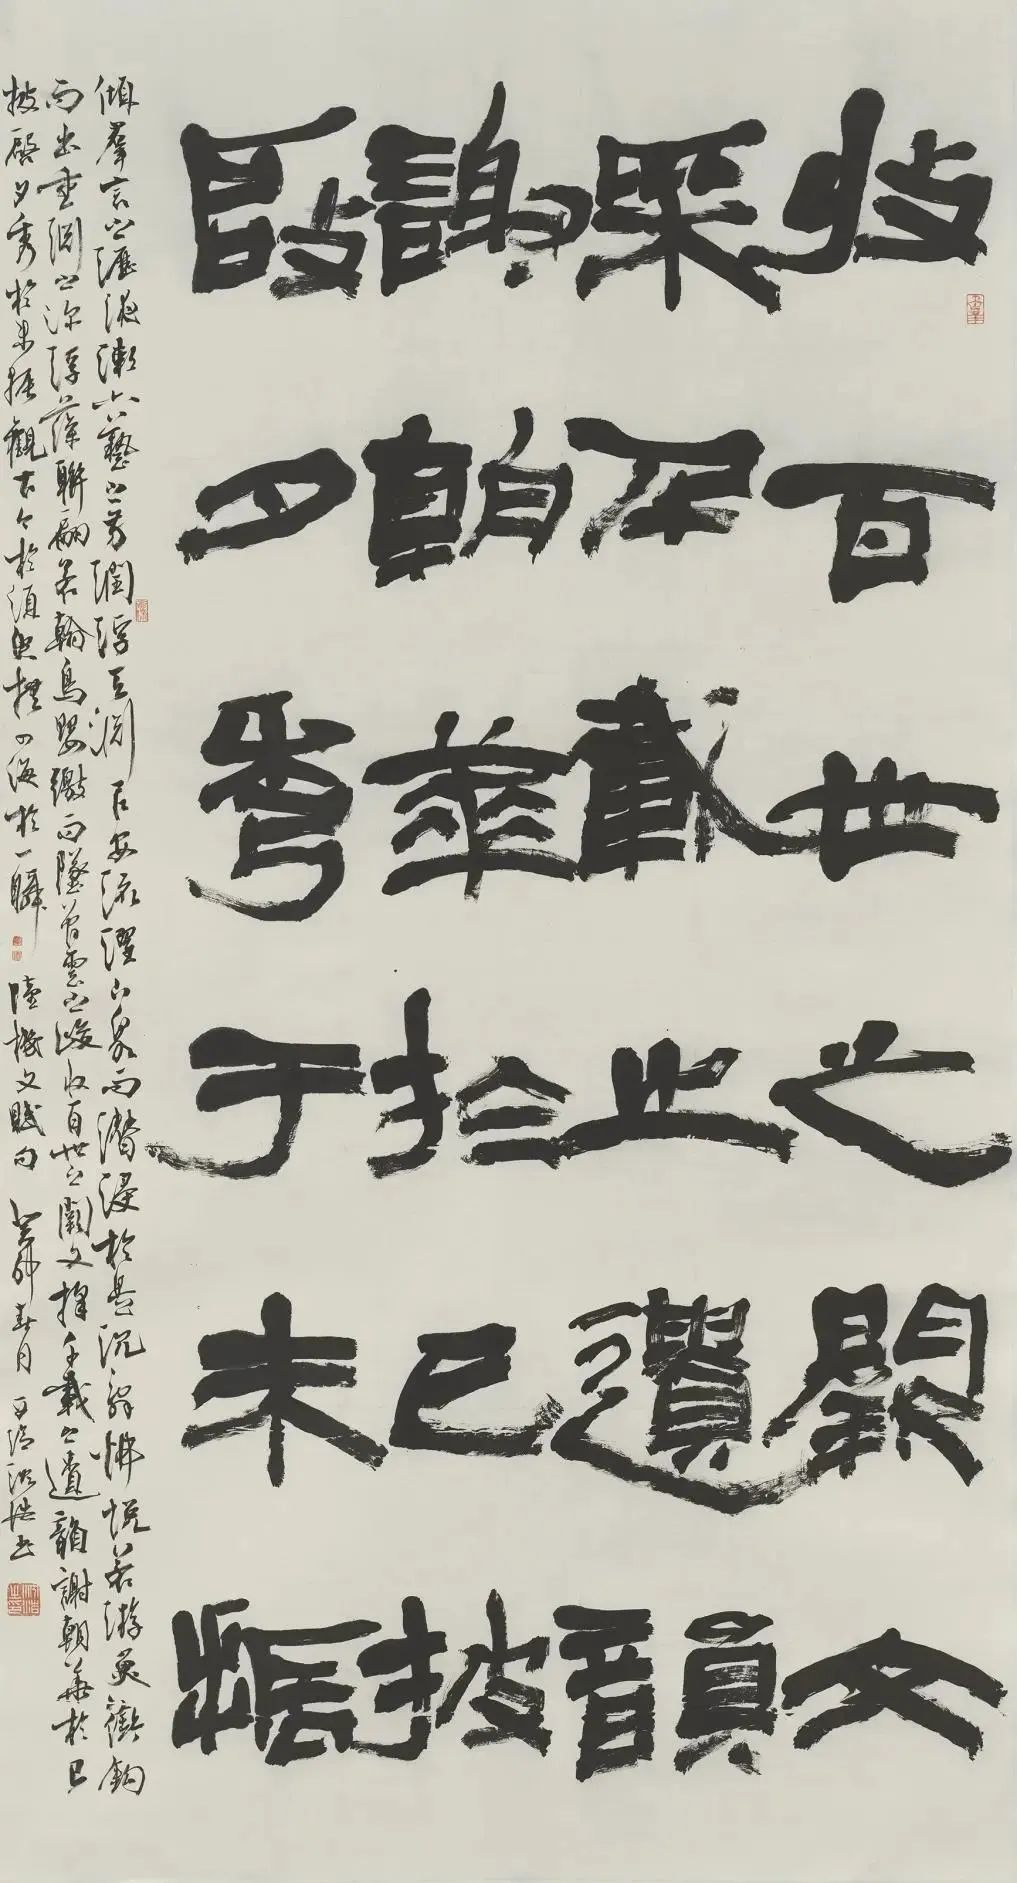 收百世之闕文
采千載之遺韻
謝朝華於已披
啟夕秀于未振
傾羣言之瀝液漱六藝之芳潤浮天淵以安流濯下泉而潛浸於是沉辭怫悅若游魚銜鈎
而出重淵之深浮藻聯翩若翰鳥嬰繳而墜曾雲之峻收百世之闕文採千載之遺韻謝朝華於已
披啟夕秀於未振觀古今於須臾撫四海於一瞬 陸機文賦句 癸卯春月 浩書